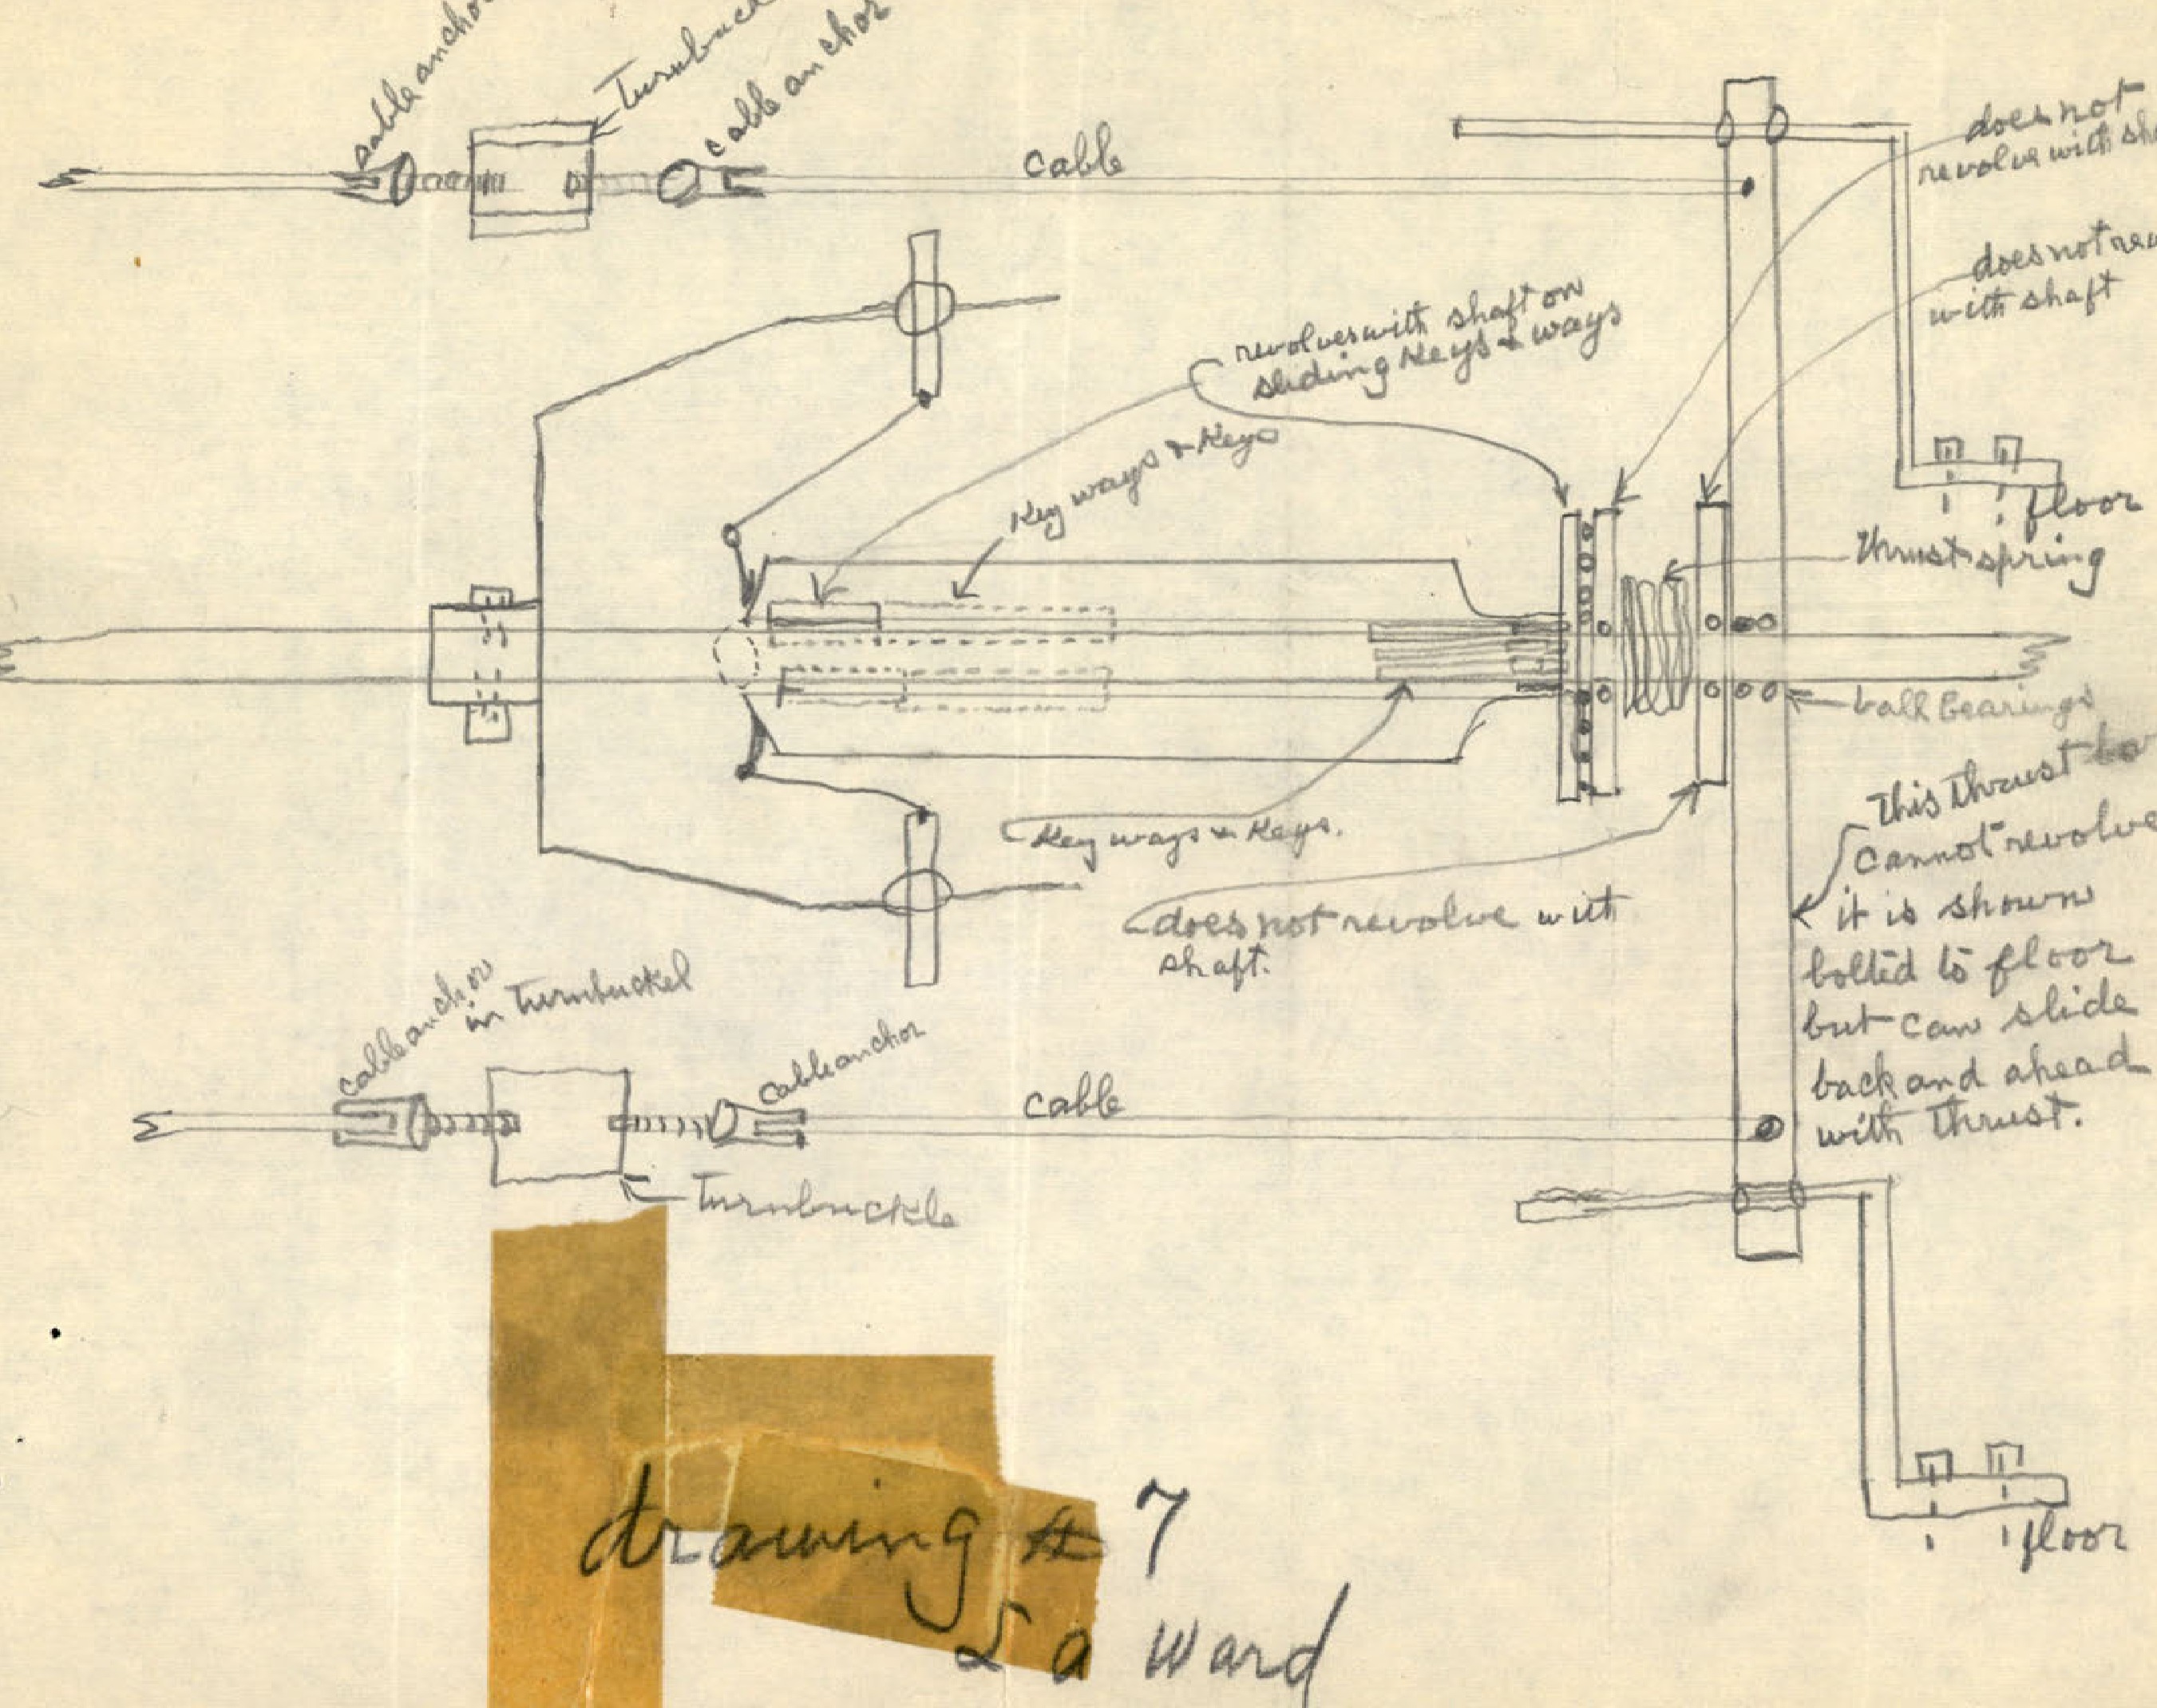 cable ancho
Turnbuck
cable anchor
cable
does not
revolve with sh
does not rev
with shaft
revolves with shaft on
sliding Keys & ways
Key ways & Keys
floor
thrust spring
ball Bearings
Key ways & Keys.
does not revolve with
shaft.
This thrust ba
cannot revolve
it is shown
bolted to floor
but can slide
back and ahead
with thrust.
cable anchor
in Turnbuckel
cable anchor
cable
Turnbuckle
floor
drawing # 7
L a Ward